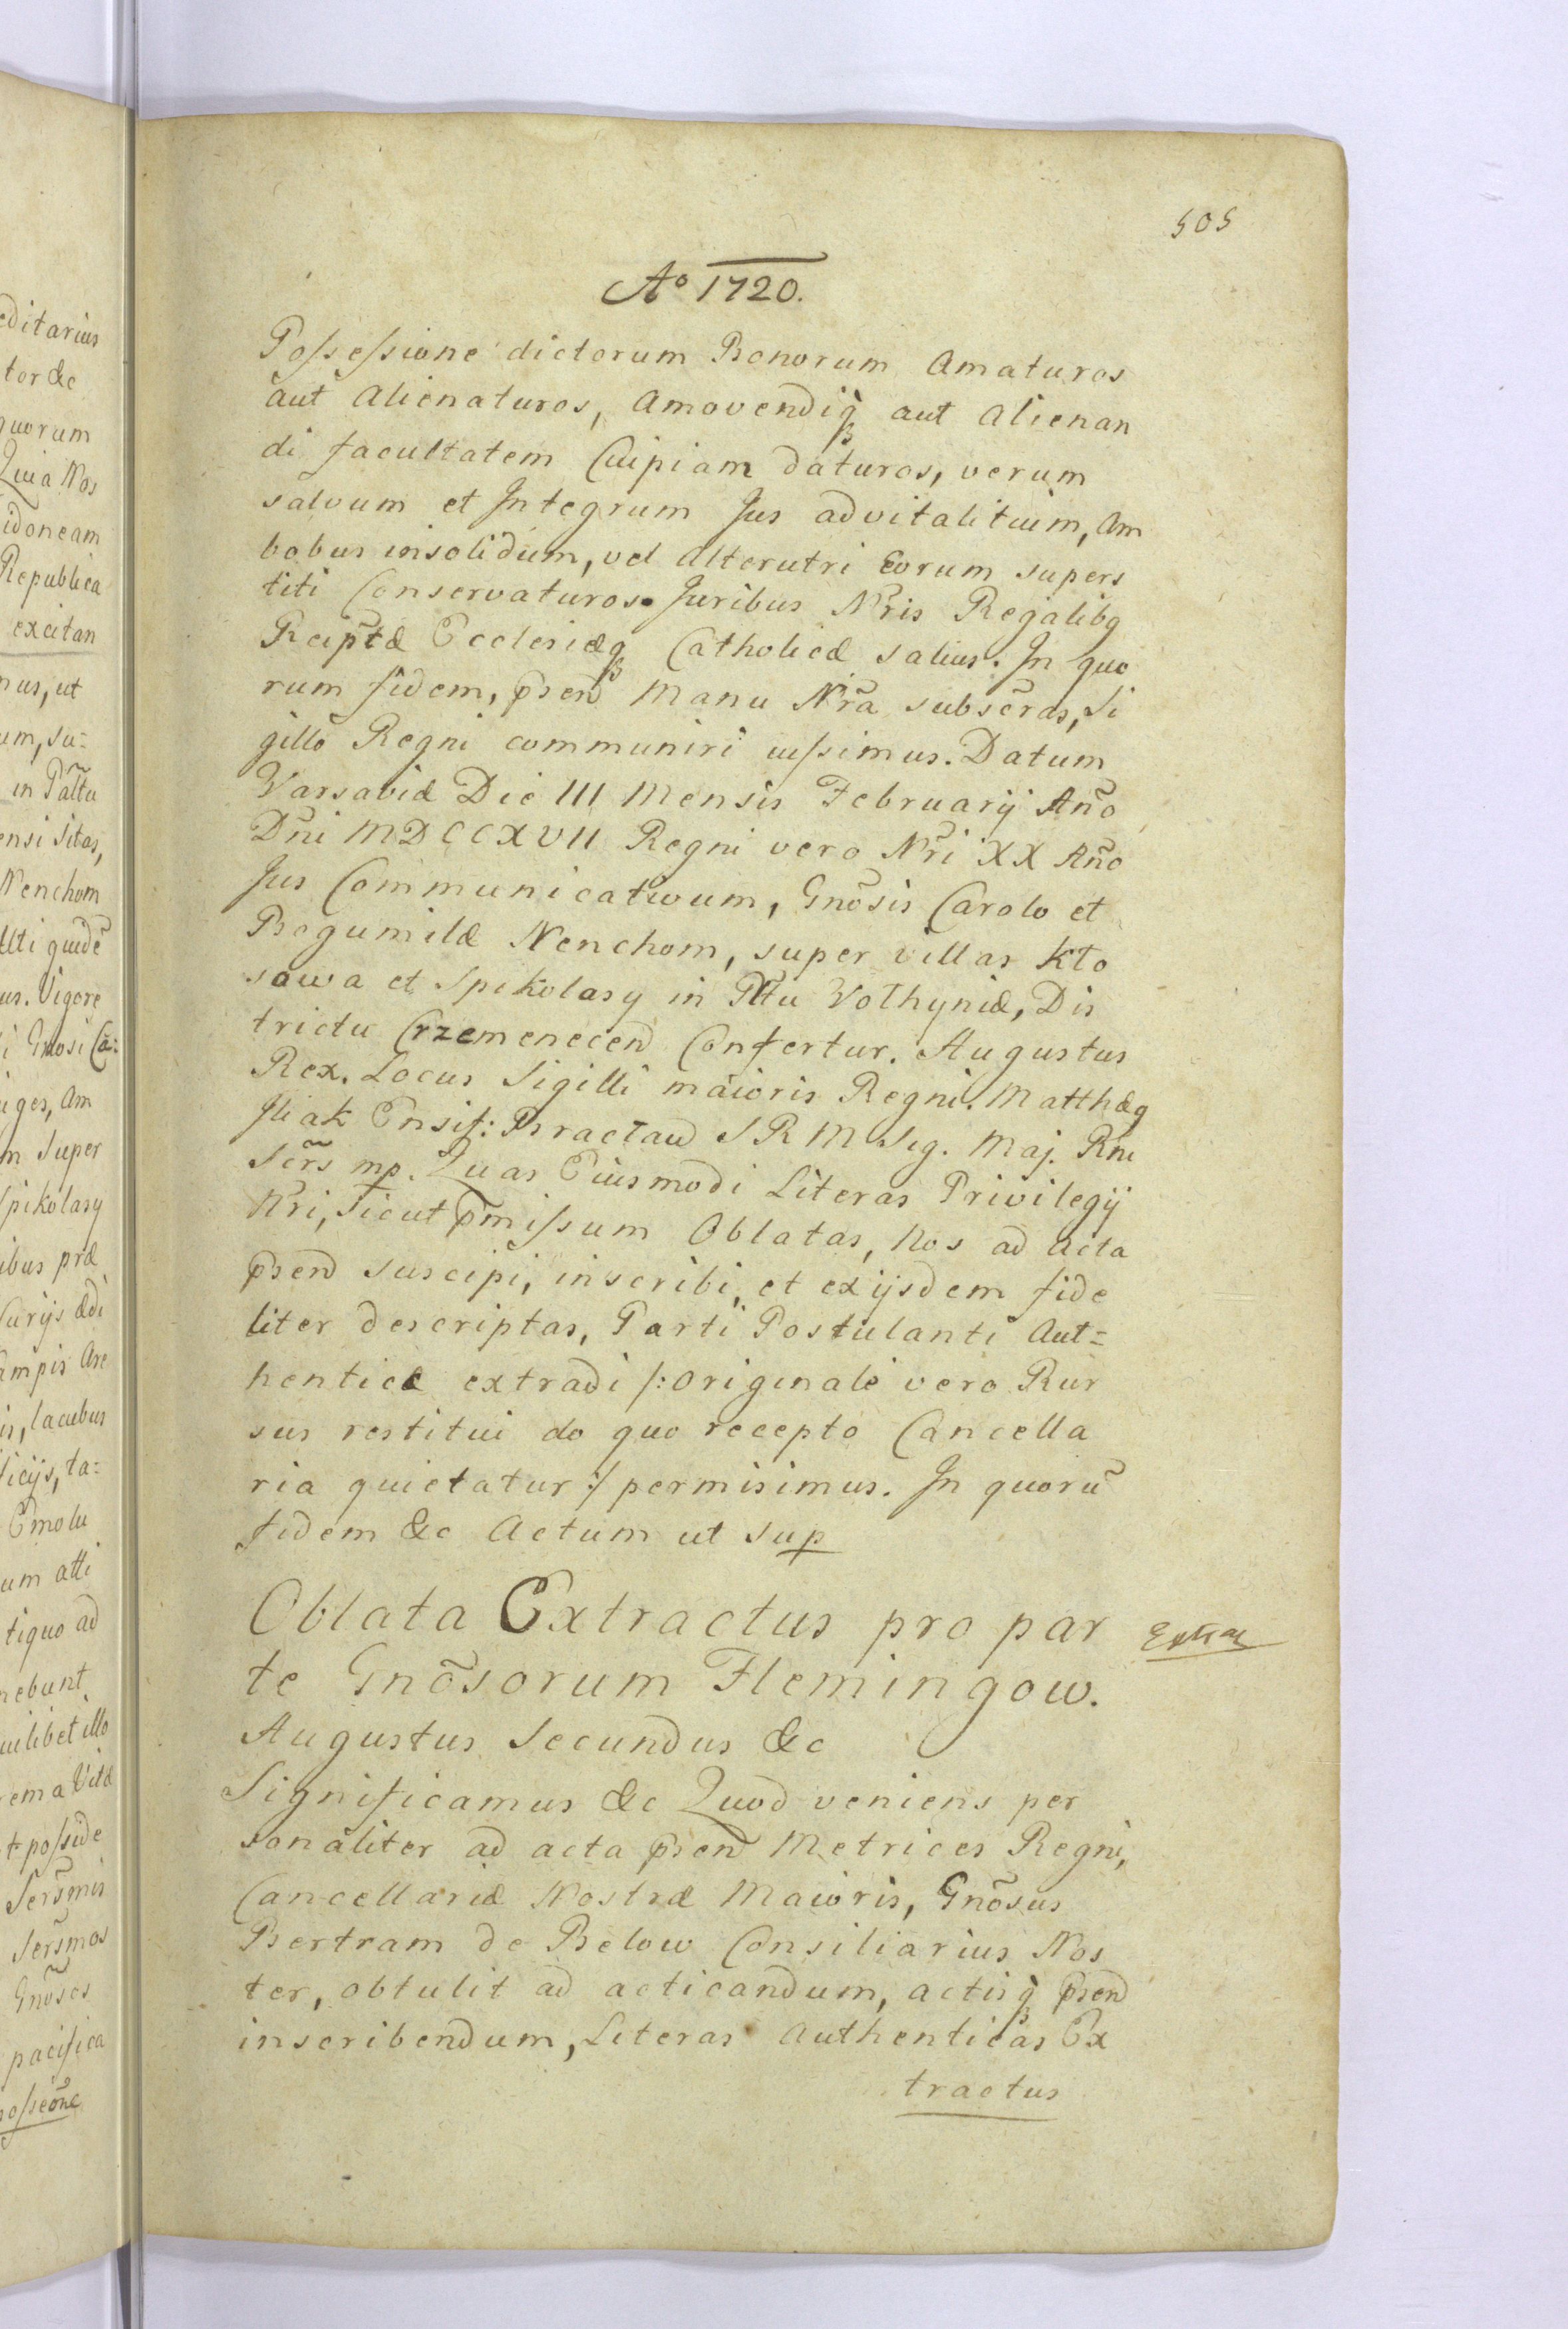 505
Aº 1720.
Possessione dictorum Bonorum Amaturos
aut Alienaturos, Amovendiq̀ aut Alienan
di facultatem Cuipiam daturos, verum
salvum et Integrum Jus advitalituim, Am
bobus insolidum, vel Alterutri Eorum supers
titi Conservaturos. Juribus Nr̃is Regalibq
Reip̃tæ Ecclesiæq Catholicæ salius. In quo
rum fidem, p̃send Manu Nr̃a subsc̃ras, Si
gillo Regni communiri iussimus. Datum
Varsaviæ Die III Mensis February Año
Dñi MDCCXVII Regni vero Nr̃i XX Año
Jus Communicativum, Gnõsis Carolo et
Bogumilæ Nenchom, super villas Kto
sowa et Spikolasy in Pttu Volhyniæ, Dis
trictu Crzemenecen Confertur. Augustus
Rex. Locus Sigilli maioris Regni. Matthæq
Iliak Ensif: Bractaw S R M Sig. Maj. Rni
Sẽrs mp. Quas Eiusmodi Literas Privilegij
Nri, sicut p̃missum Oblatas, Nos ad Acta
p̃send suscipi, inscribi, et ex ijsdem fide
liter descriptas, Parti Postulanti Aut=
henticæ extradi /: originale vero Rur
sus restitui do quo recepto Cancella
ria quietatur :/ permisimus. In quorũ
fidem &c Actum ut sup
Oblata Extractus pro par
te Gnõsorum Flemingow.
Augustus Secundus &c
Significamus &c Quod veniens per
sonaliter ad acta p̃send Metrices Regni,
Cancellariæ Nostræ Maioris, Gnõsus
Bertram de Below Consiliarius Nos
ter, obtulit ad acticandum, actisq̀ p̃send
inscribendum, Literas Authenticas Ex
tractus
editarius
tor &c
quorum
Quia Nos
idoneam
Republica
excitan
nus, ut
um, su=
in Pal̃tu
ensi sitas,
Nenchom
Uti quidẽ
us. Vigore
i Gnosi Ca=
iges, Am
m Super
Spikolasy
ibus præ
Curijs ædi
ampis Are
is, lacubus
ficijs, ta=
Emolu
um atti
tiquo ad
nebunt
uilibet illo
rem a Vitæ
t posside
Sers̃mis
Sers̃mos
Gnõsos
pacifica
possẽone